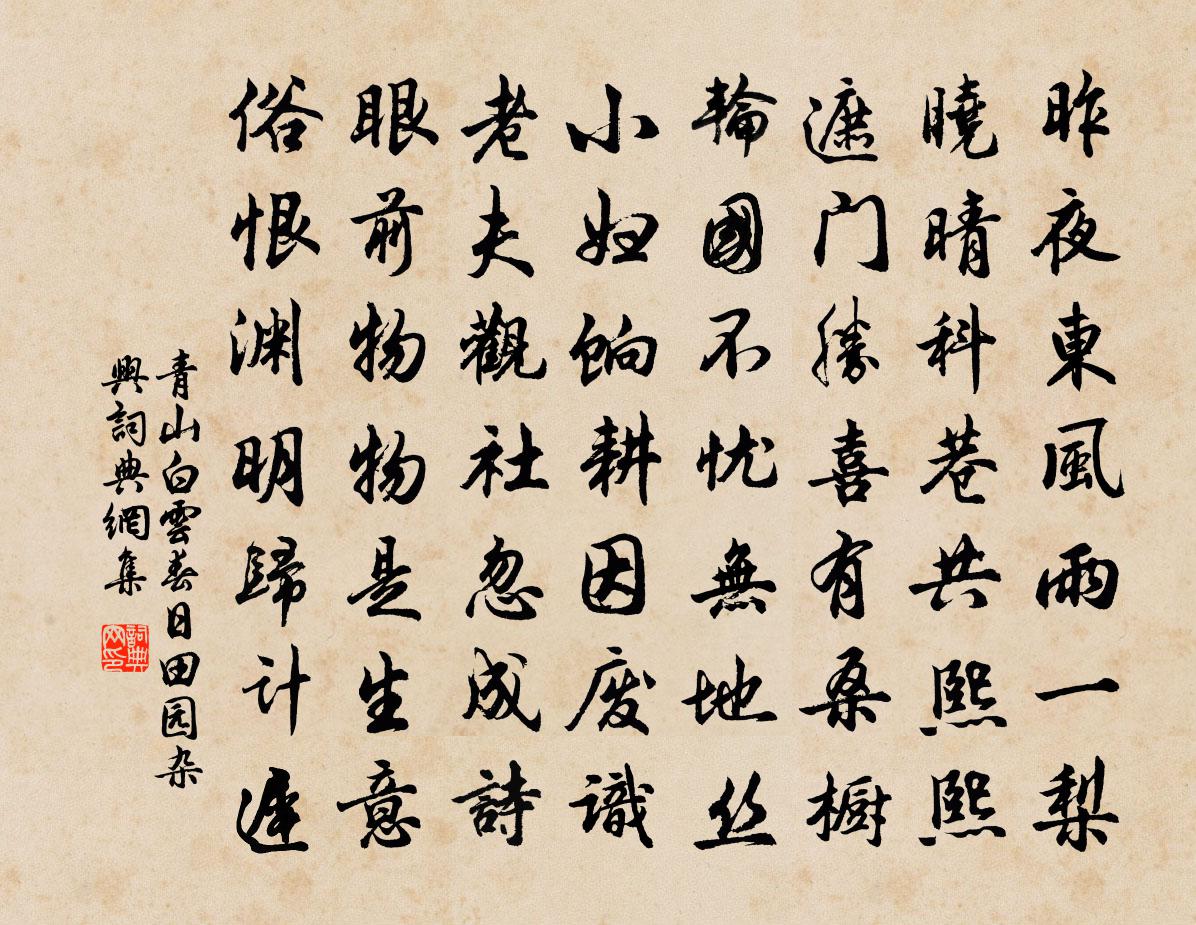 昨夜東風雨一梨
曉晴科巷共熙熙
遮门勝喜有桑橱
輪國不忧無地丝
小妇饷耕因废識
老夫觀社忽成詩
眼前物物是生意
俗恨渊明歸计遲
青山白雲春日田园杂
興詞典網集
詞典网印